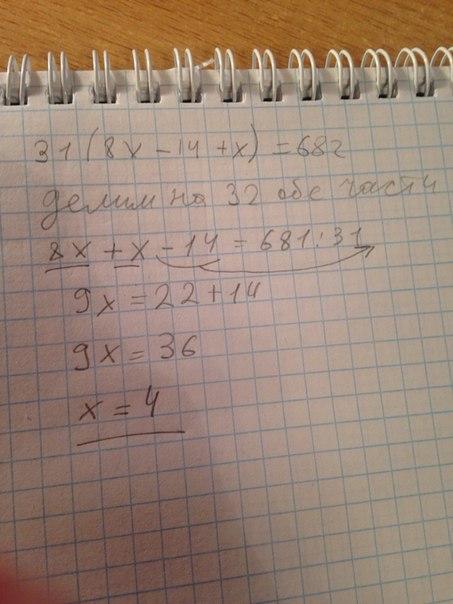 31(8x - 14 + x) = 682
делим на 32 обе части
8x + x - 14 = 681:31
9x = 22 + 14
9x = 36
x = 4